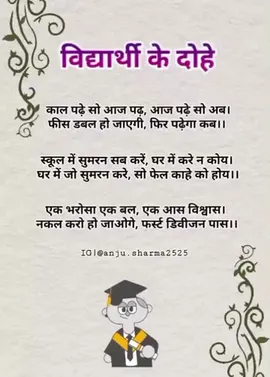 विद्यार्थी के दोहे
काल पढ़े सो आज पढ़, आज पढ़े सो अब।
फीस डबल हो जाएगी, फिर पढ़ेगा कब।।
स्कूल में सुमरन सब करें, घर में करे न कोय।
घर में जो सुमरन करे, सो फेल काहे को होय।।
एक भरोसा एक बल, एक आस विश्वास।
नकल करो हो जाओगे, फर्स्ट डिवीजन पास।।
IG|@anju.sharma2525